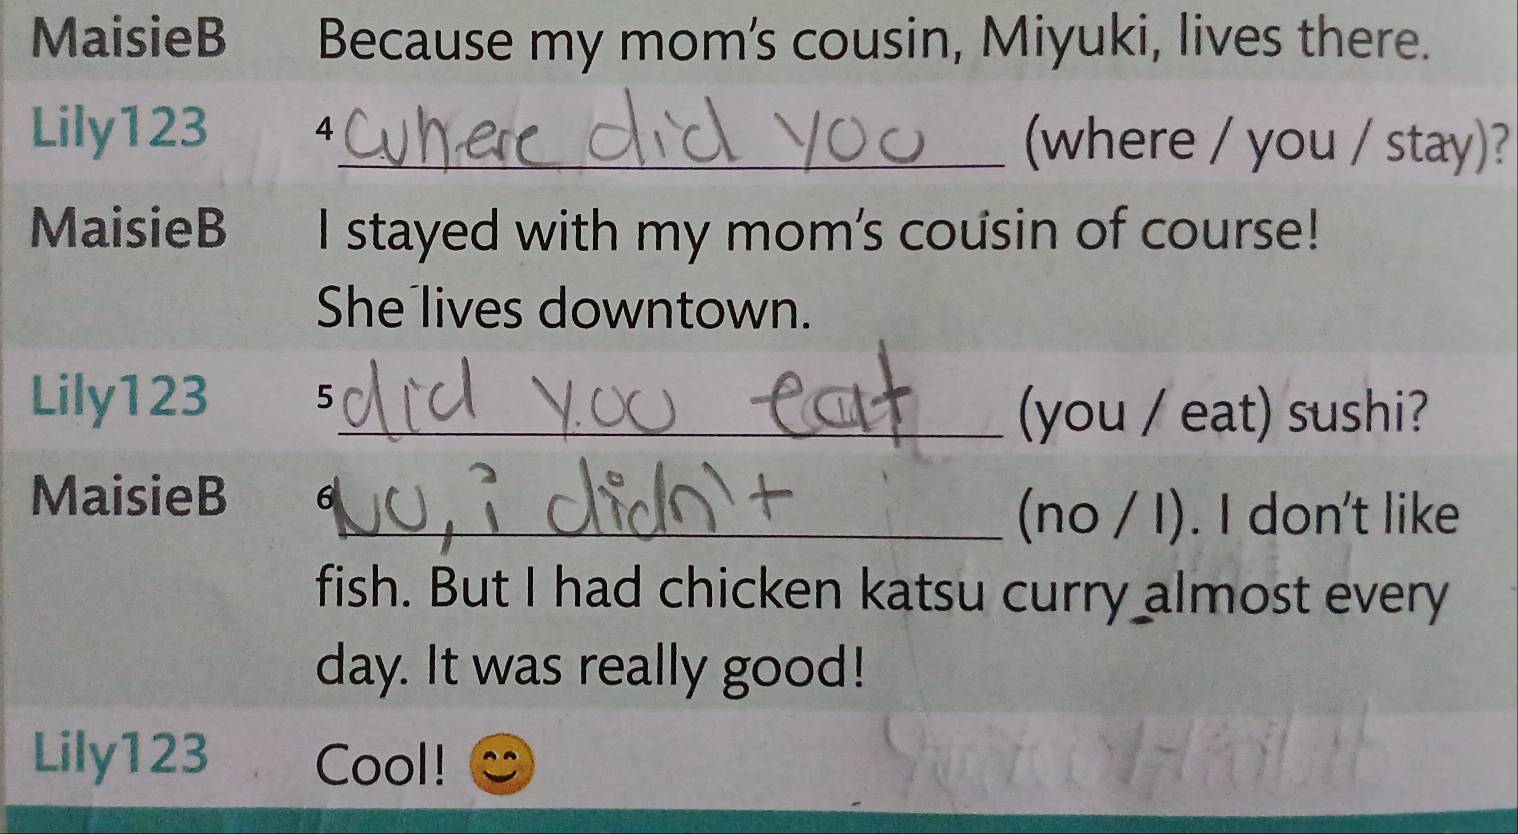 MaisieB Because my mom's cousin, Miyuki, lives there.
Lily123 4 where did you (where / you / stay)?
MaisieB I stayed with my mom's cousin of course!
She lives downtown.
Lily123 5 did you eat (you / eat) sushi?
MaisieB 6 No, i didn't (no / I). I don't like
fish. But I had chicken katsu curry almost every
day. It was really good!
Lily123 Cool! 😊